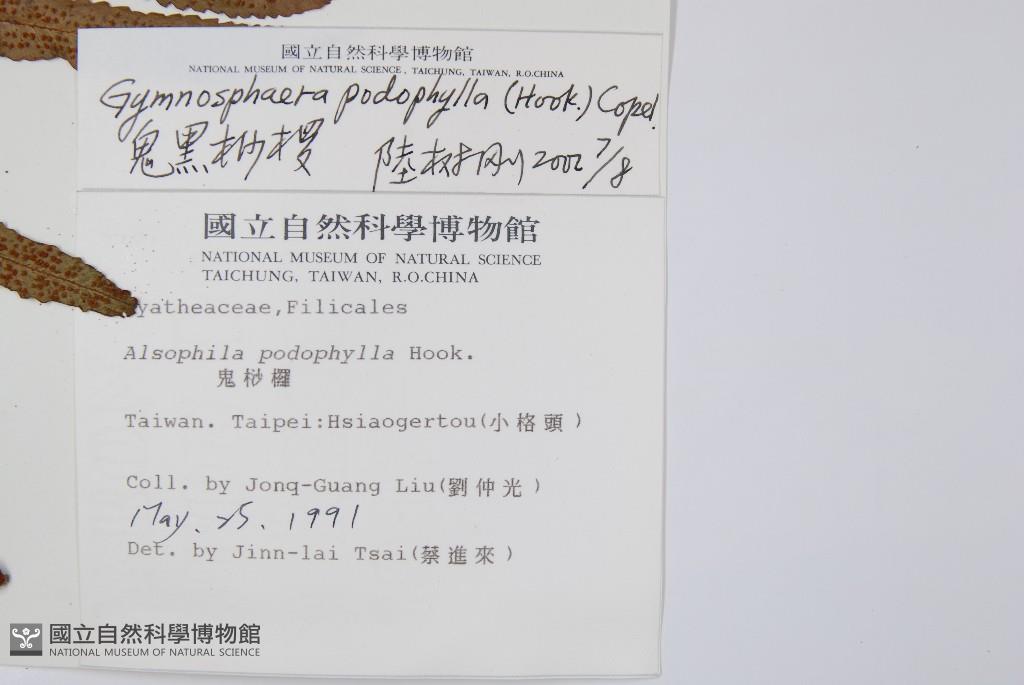 國立自然科學博物館
NATIONAL MUSEUM OF NATURAL SCIENCE, TAICHUNG, TAIWAN, R.O.CHINA
Gymnosphaera podophylla (Hook.) Copel.
鬼黑桫欏 陸樹剛 2002 7/8
國立自然科學博物館
NATIONAL MUSEUM OF NATURAL SCIENCE
TAICHUNG, TAIWAN, R.O.CHINA
yatheaceae,Filicales
Alsophila podophylla Hook.
鬼桫欏
Taiwan. Taipei:Hsiaogertou(小格頭)
Coll. by Jonq-Guang Liu(劉仲光)
May. 25. 1991
Det. by Jinn-lai Tsai(蔡進來)
國立自然科學博物館
NATIONAL MUSEUM OF NATURAL SCIENCE